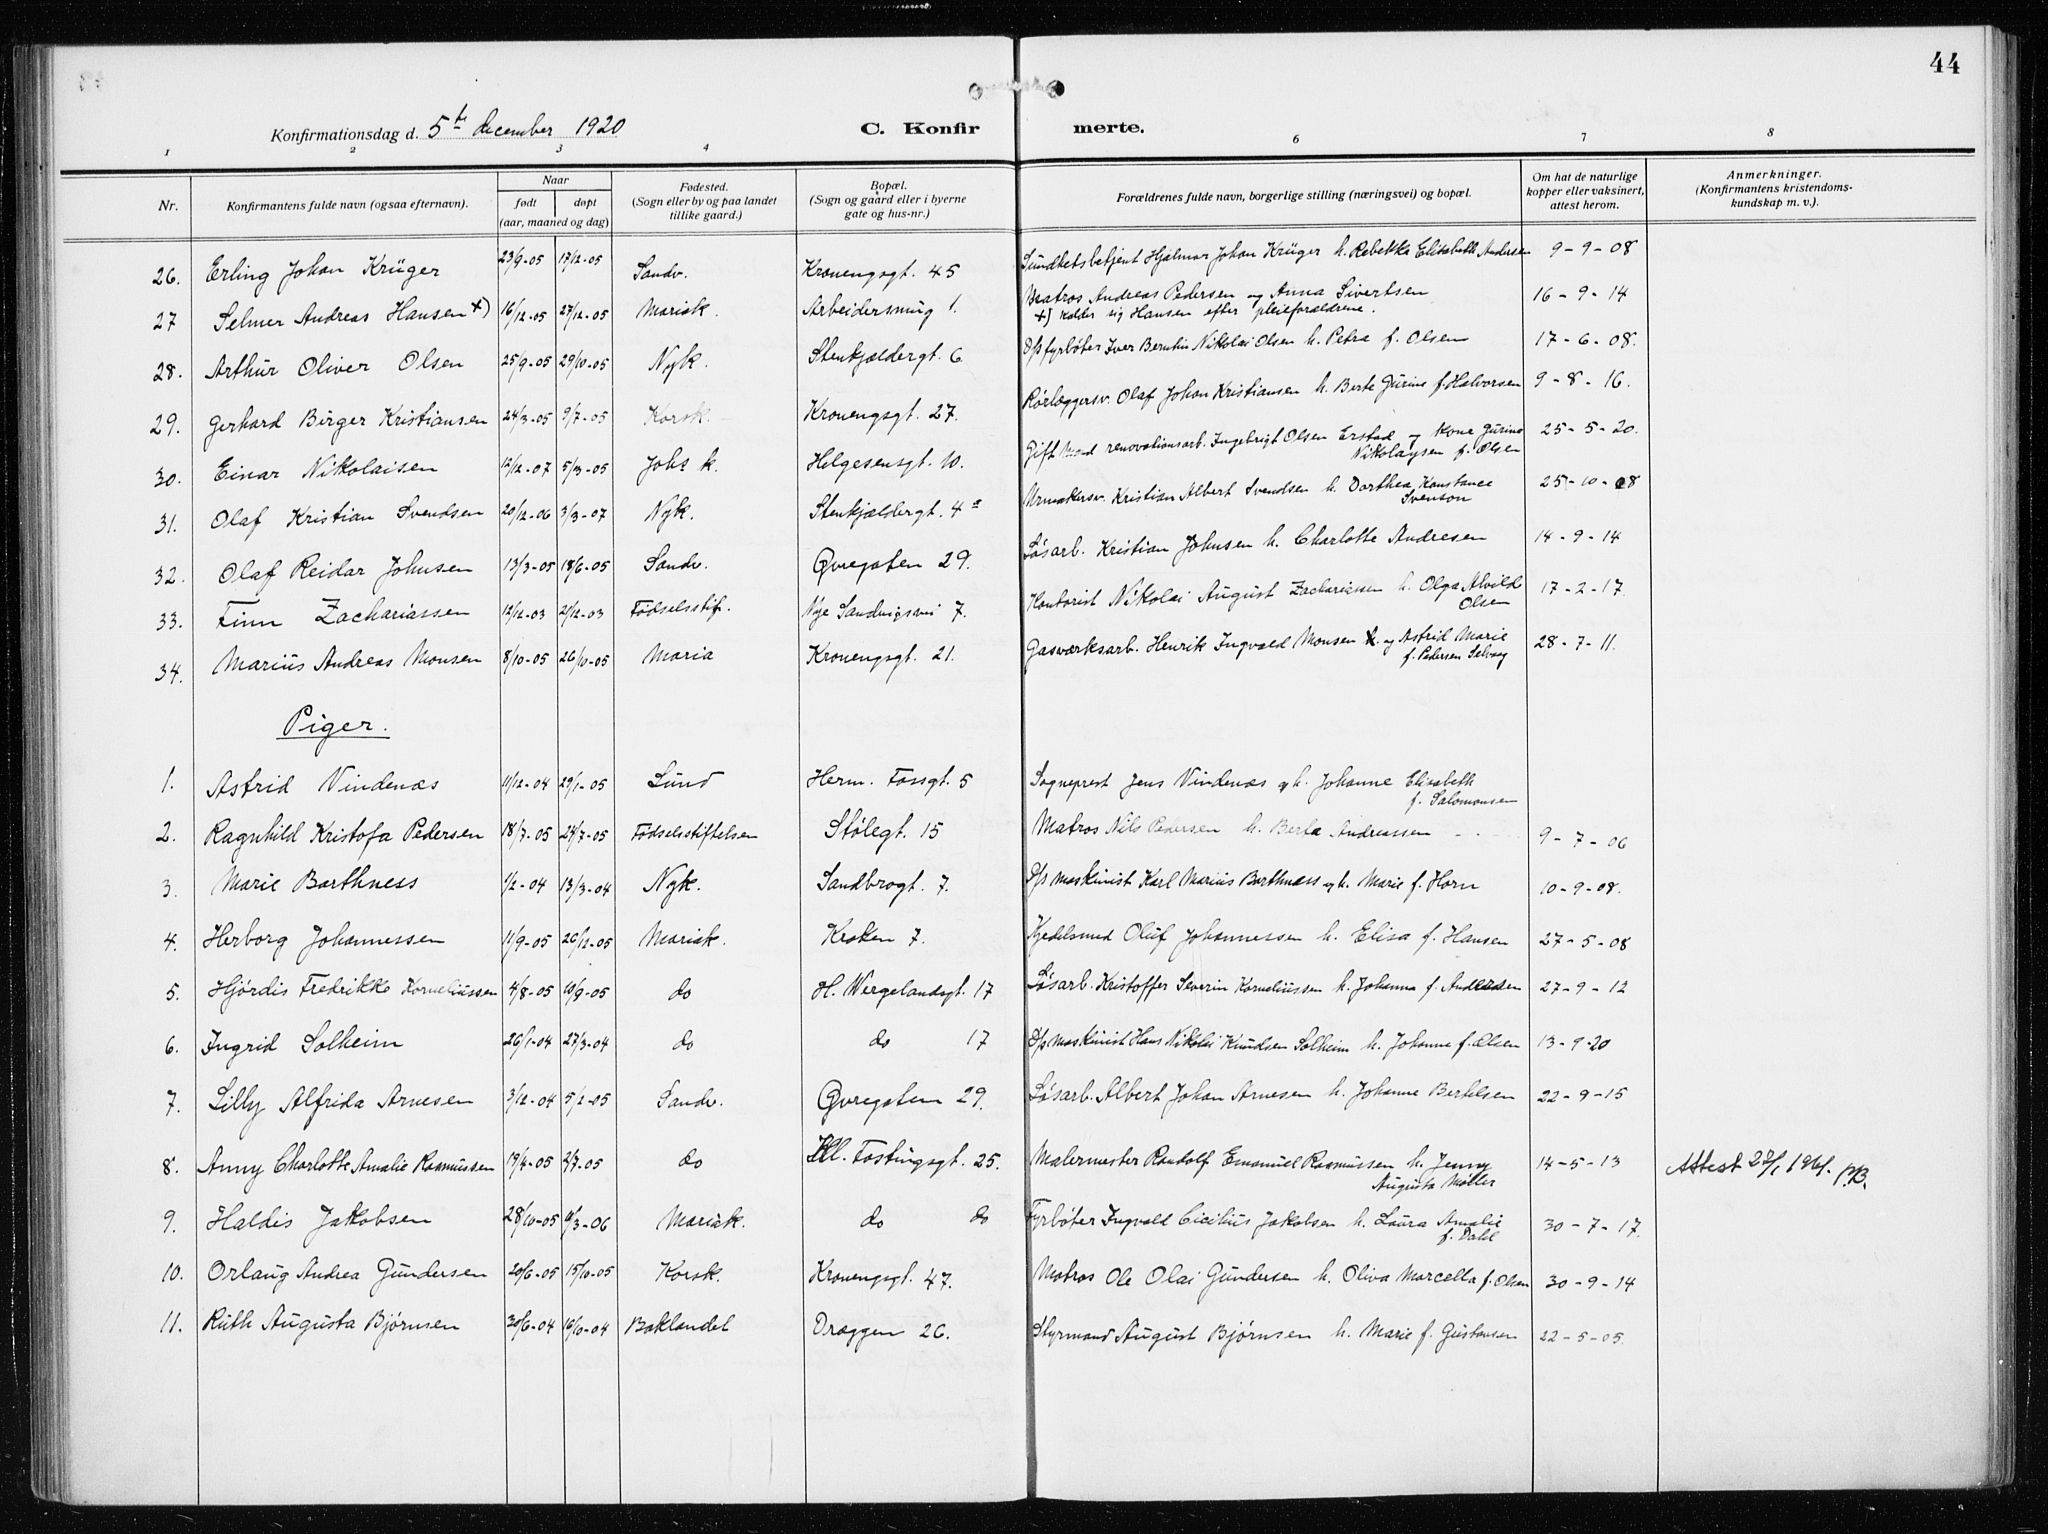 44
Konfirmationsdag d. 5te december 1920 C. Konfirmerte.
1 2 3 4 6 7 8
Nr. Konfirmantens fulde navn (ogsaa efternavn). Naar født døpt (aar, maaned og dag) Fødested. (Sogn eller by og paa landet tillike gaard.) Bopæl. (Sogn og gaard eller i byerne gate og hus-nr.) Forældrenes fulde navn, borgerlige stilling (næringsvei) og bopæl. Om hat de naturlige kopper eller vaksinert, attest herom. Anmerkninger. (Konfirmantens kristendomskundskap m. v.).
26. Erling Johan Krüger 23/9-05 17/12-05 Sandv. Kronengsgt. 45 Sundhetsbetjent Hjalmar Johan Krüger h. Rebekka Elisabeth Andersen 9-9-08
27 Selmer Andreas Hansen +) 16/12-05 27/12-05 Mariak. Arbeidersmug 1. Matros Andreas Pedersen og Anna Sivertsen 16-9-14
+) kalder sig Hansen efter pleieforældrene.
28. Arthur Oliver Olsen 25/9-05 29/10-05 Nyk. Stenkjældergt. 6 D/s fyrbøter Iver Berntin Nikolai Olsen h. Petra f. Olsen 17-6-08.
29. Gerhard Birger Kristiansen 24/3-05 9/7-05 Korsk. Kronengsgt. 27. Rørlæggersv. Olaf Johan Kristiansen h. Berte Gurine f. Halvorsen 9-8-16.
30. Einar Nikolaisen 12/12-07 5/3-05 Johs k. Helgesensgt. 10. Gift Mand renovationsarb. Ingebrigt Olsen Erstad og Kone Gurine 25-5-20.
Nikolaysen f. Olsen
31. Olaf Kristian Svendsen 20/12-06 3/3-07 Nyk. Stenkjældergt. 4a Urmakersv. Kristian Albert Svendsen h. Dorthea Konstance 25-10-08
Svenson
32. Olaf Reidar Johnsen 13/3-05 18/6-05 Sandv. Øvregaten 29. Løsarb. Kristian Johnsen h. Charlotte Andresen 14-9-14
33. Finn Zachariassen 12/12-03 21/12-03 Fødselsstif. Nye Sandvigsvei 7. Kontorist Nikolai August Zachariassen h. Olga Alvild 17-2-17.
Olsen
34. Marius Andreas Monsen 8/10-05 26/10-05 Maria Kronengsgt. 21. Gasværksarb. Henrik Ingvald Monsen h. og Astrid Marie 28-7-11.
f. Pedersen Selvaag
Piger.
1. Astrid Vindenæs 11/12-04 29/1-05 Sund Herm. Fossgt. 5 Sogneprest Jens Vindenæs og h. Johanne Elisabeth
f. Salomonsen
2. Ragnhild Kristofa Pedersen 18/7-05 24/7-05 Fødselsstiftelsen Stølegt. 15 Matros Nils Pedersen h. Berta Andreassen 9-7-06
3. Marie Barthness 1/2-04 13/3-04 Nyk. Sandbrogt. 7. D/s maskinist Karl Marius Barthness og h. Marie f. Horn 10-9-08.
4. Herborg Johannessen 11/9-05 26/12-05 Mariak. Kroken 7. Kjedelsmed Oluf Johannessen h. Elisa f. Hansen 27-5-08
5. Hjørdis Fredrikke Korneliussen 4/8-05 10/9-05 do H. Wergelandsgt. 17 Løsarb. Kristoffer Severin Korneliussen h. Johanna f. Andersen 27-9-12
6. Ingrid Solheim 26/1-04 27/3-04 do do 17 D/s maskinist Hans Nikolai Knudsen Solheim h. Johanne f. Olsen 13-9-20
7. Lilly Alfrida Arnesen 3/12-04 5/2-05 Sandv. Øvregaten 29. Løsarb. Albert Johan Arnesen h. Johanne Bertelsen 22-9-15
8. Anny Charlotte Amalie Rasmussen 19/4-05 2/7-05 do Kl. Fostingsgt. 25. Malermester Randolf Emanuel Rasmussen h. Jenny 14-5-13 Attest 1961. P.B.
Augusta Møller
9. Haldis Jakobsen 28/10-05 11/3-06 Mariak. do do Fyrbøter Ingvald Cicilius Jakobsen h. Laura Amalie 30-7-17.
f. Dahl
10. Orlaug Andrea Gundersen 20/6-05 15/10-05 Korsk. Kronengsgt. 47. Matros Ole Olai Gundersen h. Oliva Marcella f. Olsen 30-9-14
11. Ruth Augusta Bjørnsen 30/6-04 16/10-04 Baklandet Dræggen 26. Styrmand August Bjørnsen h. Marie f. Gustavsen 22-5-05.